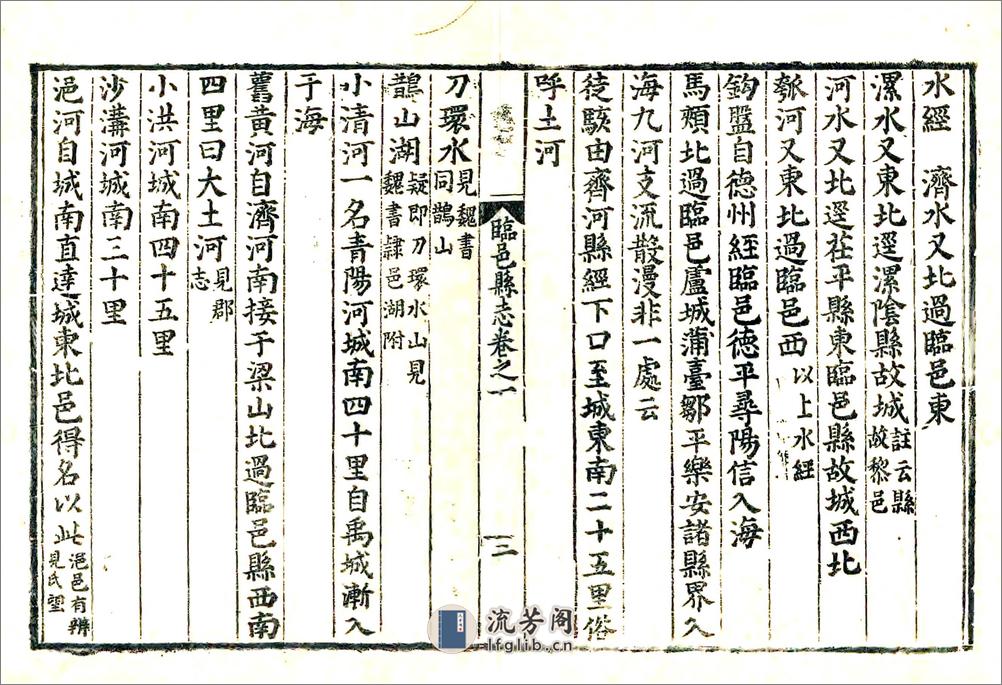 水經　濟水又北過臨邑東
漯水又東北逕漯陰縣故城註云縣故黎邑
河水又北逕茌平縣東臨邑縣故城西北
瓠河又東北過臨邑西以上水經
鈎盤自德州經臨邑德平尋陽信入海
馬頰北過臨邑廬城蒲臺鄒平樂安諸縣界入
海九河支流散漫非一處云
徒駭由齊河縣經下口至城東南二十五里俗
呼土河
臨邑縣志卷之一
三
刀環水見魏書同鵲山
鵲山湖疑即刀環水山見魏書隸邑湖附
小清河一名青陽河城南四十里自禹城漸入
于海
舊黃河自濟河南接于梁山北過臨邑縣西南
四里曰大土河見郡志
小洪河城南四十五里
沙溝河城南三十里
浥河自城南直達城東北邑得名以此浥邑有辨見氏望
流芳阁
lfglib.cn